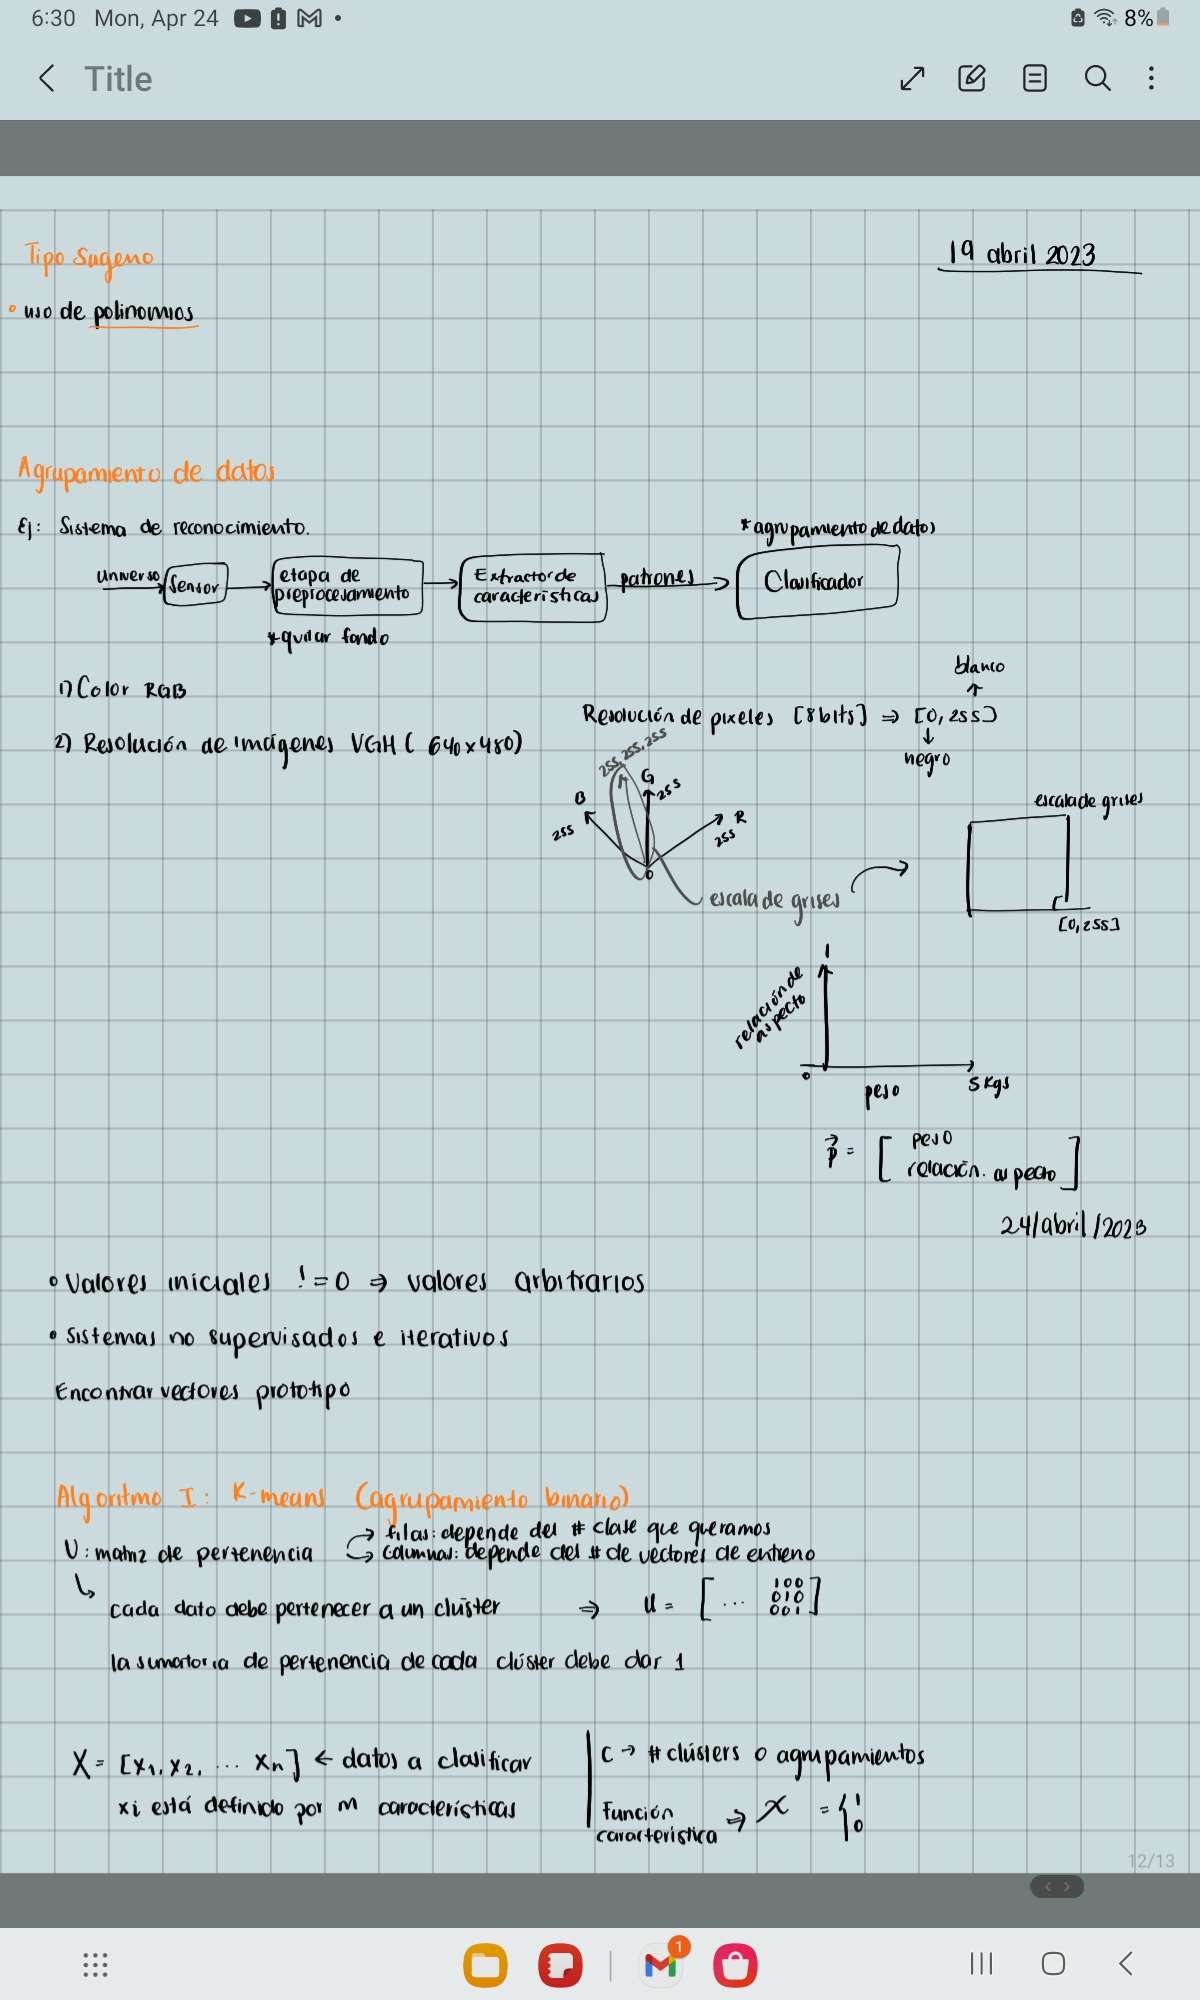 6:30 Mon, Apr 24
8%
Title
Tipo Sugeno
19 abril 2023
• uso de polinomios
Agrupamiento de datos
Ej: Sistema de reconocimiento.
*agrupamiento de datos
universo
Sensor
etapa de
preprocesamiento
Extractor de
características
patrones
Clasificador
*quitar fondo
1) Color RGB
blanco
Resolución de pixeles [8bits] ⇒ [0, 255]
2) Resolución de imágenes VGH ( 640x480)
negro
255, 255, 255
B
G
255
255
R
255
0
escala de grises
escala de grises
[0, 255]
1
relación de
aspecto
0
peso
5 Kgs
p⃗ = [ peso
relación. aspecto ]
24/abril/2023
• Valores iniciales != 0 ⇒ valores arbitrarios
• Sistemas no supervisados e iterativos
Encontrar vectores prototipo
Algoritmo I: K-means (agrupamiento binario)
U: matriz de pertenencia
→ filas: depende del # clase que queramos
→ columnas: depende del # de vectores de entreno
cada dato debe pertenecer a un clúster ⇒ U = [ ... 100
010
001 ]
la sumatoria de pertenencia de cada clúster debe dar 1
X = [x1, x2, ... xn] ← datos a clasificar
xi está definido por m características
C → # clústers o agrupamientos
Función
característica ⇒ X = { 1
0
12/13
1